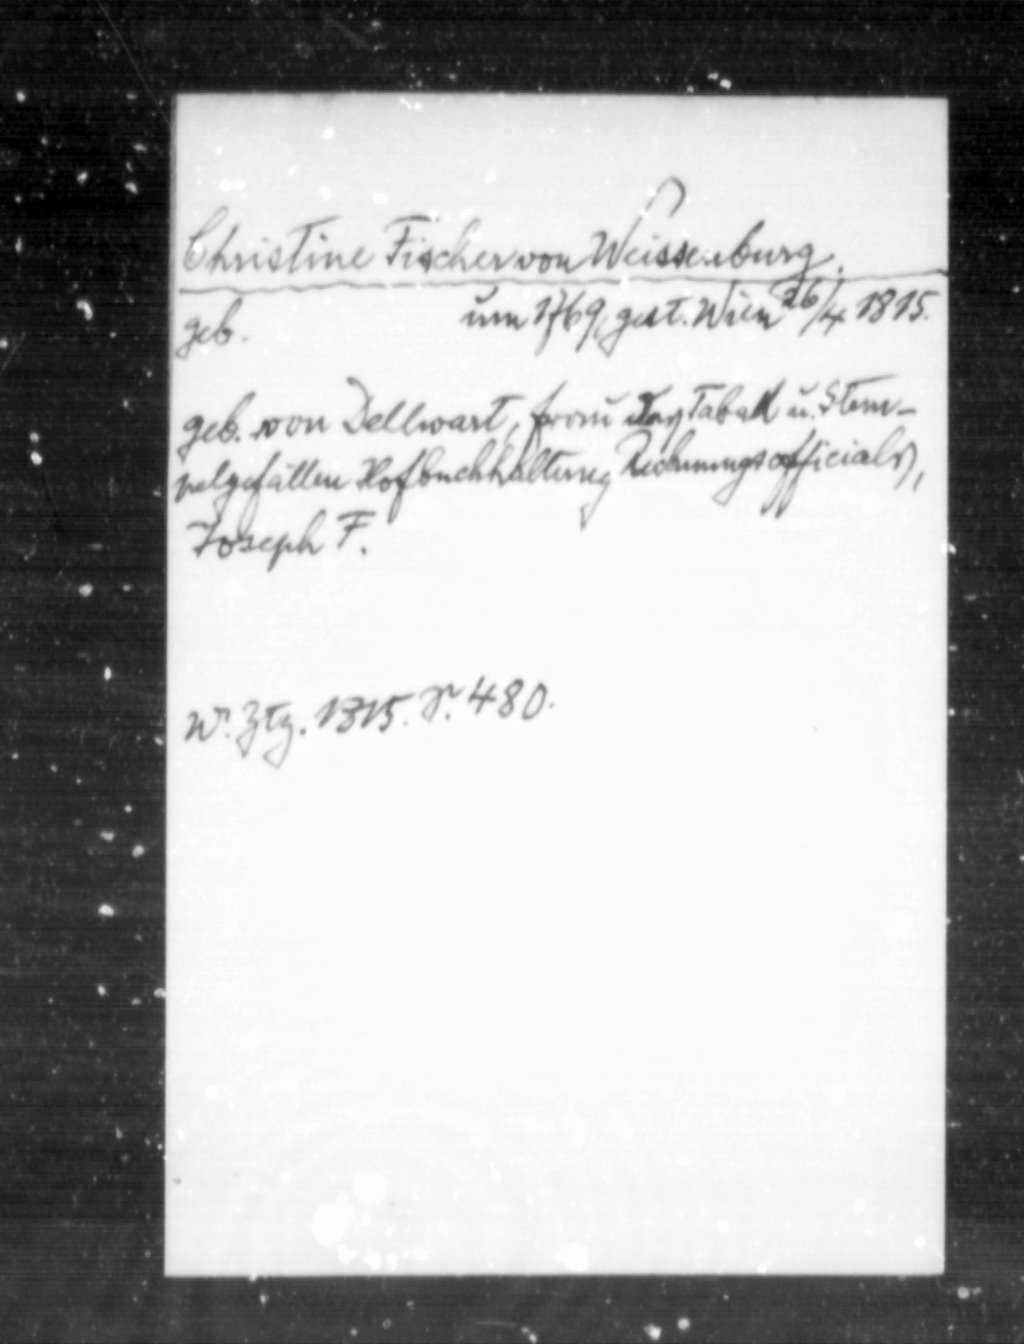 Christine Fischer von Weissenburg.
geb. um 1769, gest. Wien 26/4 1815.
geb. von Dellwart, Tabak u. Stem-
pelgefällen Hofbuchhaltung Rechnungsofficials),
Joseph F.
Wr. Ztg. 1815. S. 480.